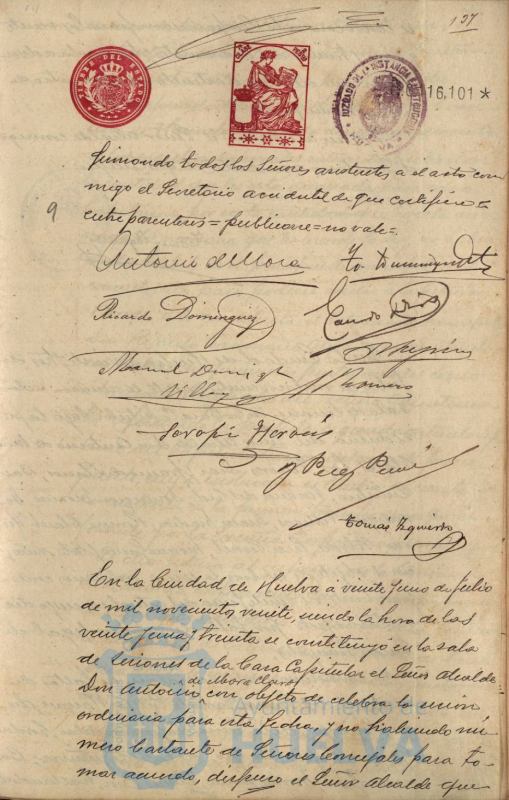 137
TIMBRE DEL ESTADO
16,101 *
JUZGADO DE 1ª INSTANCIA E INSTRUCCION
HUELVA
firmando todos los Señores asistentes a el acto con
migo el Secretario accidental de que certifico =
entre parentesis = publicarse = no vale =.
9
Antonio de Mora
Ricardo Dominguez
Manuel
Romero
Serafin
J Perez
Tomás Izquierdo
En la Ciudad de Huelva á veinte y uno de Julio
de mil novecientos veinte, siendo la hora de las
veinte y una y treinta se constituyó en la sala
de sesiones de la Casa Capitular el Señor Alcalde
Don Antonio de Mora Claros con objeto de celebrar la sesion
ordinaria para esta fecha, y no habiendo nú-
mero bastante de Señores Concejales para to-
mar acuerdo, dispuso el Señor Alcalde que
Ayuntamiento de
HUELVA